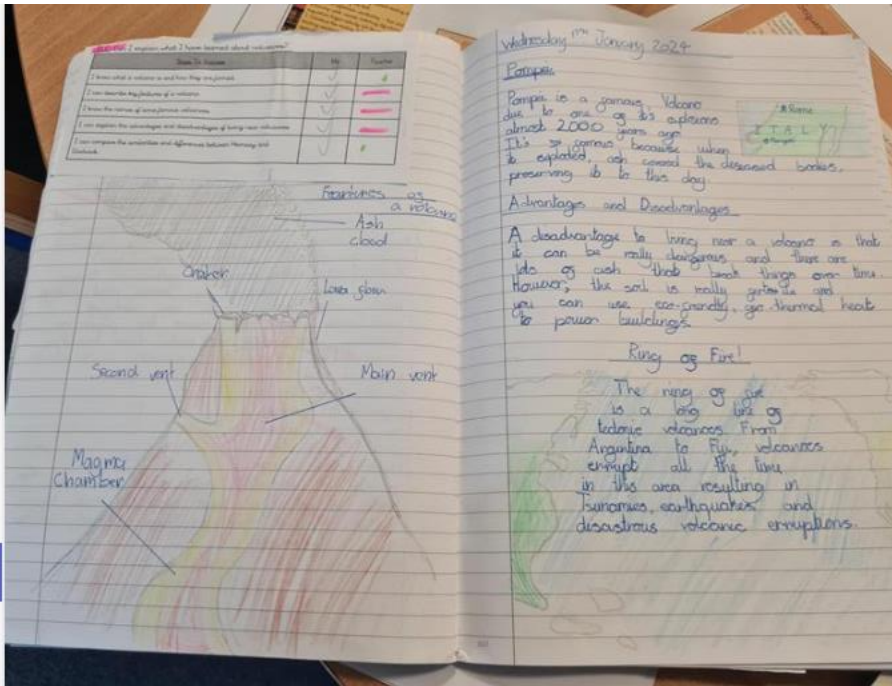 I explain what I have learned about volcanoes?
Steps To Success
Me
Teacher
I know what a volcano is and how they are formed.
I can describe key features of a volcano.
I know the names of some famous volcanoes.
I can explain the advantages and disadvantages of living near volcanoes.
I can compare the similarities and differences between and
Features of
a volcano
Ash
cloud
Crater
Lava flow
Second vent
Main vent
Magma
Chamber
Wednesday January 2024
Pompeii
Pompeii is a famous, Volcano
due to one of its explosions
almost 2000 years ago.
It's so famous because when
it exploded, ash covered the deseased bodies,
preserving it to this day.
Rome
ITALY
Pompeii
Advantages and Disadvantages
A disadvantage to living near a volcano is that
it can be really dangerous and there are
lots of ash that break things over time.
However, the soil is really and
you can use eco-friendly, geo-thermal heat
to power buildings.
Ring of Fire!
The ring of fire
is a long line of
tectonic volcanoes. From
Argentina to Fiji, volcanoes
errupt all the time
in this area resulting in
Tsunamies, earthquakes and
disastrous volcanic erruptions.